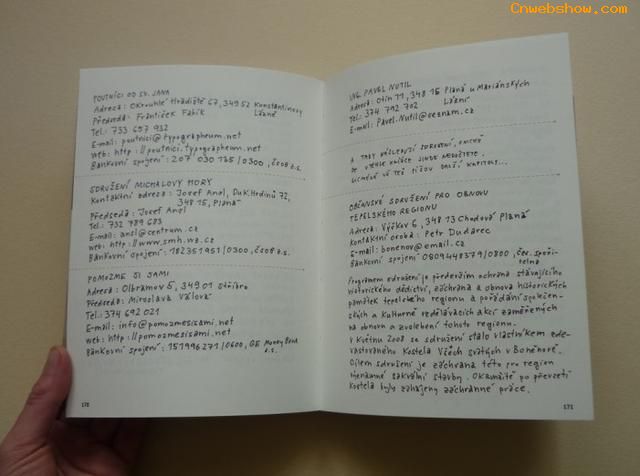 Cnwebshow.com
POUTNÍCI OD SV. JANA
Adresa: Okrouhlé Hradiště 67, 349 52 Konstantinovy
Lázně
Předseda: František Fabík
Tel.: 733 697 932
E-mail: poutnici@typographeum.net
Web: http://poutnici.typographeum.net
Bankovní spojení: 207 030 185/0300, ČSOB a.s.
SDRUŽENÍ MICHALOVY HORY
Kontaktní adresa: Josef Anzl, Duk. Hrdinů 72,
348 15, Planá
Předseda: Josef Anzl
Tel.: 732 789 683
E-mail: anzl@centrum.cz
web: http://www.smh.wz.cz
Bankovní spojení: 182351951/0300, ČSOB a.s.
POMOZME SI SAMI
Adresa: Olbramov 5, 349 01 Stříbro
Předseda: Miroslava Válová
Tel.: 374 692 021
E-mail: info@pomozmesisami.net
web: http://pomozmesisami.net
Bankovní spojení: 151996271/0600, GE Money Bank
a.s.
170
ING. PAVEL NUTIL
Adresa: Otín 11, 348 15 Planá u Mariánských
Lázní
Tel.: 374 792 702
E-mail: Pavel.Nutil@seznam.cz
A TADY NÁSLEDUJÍ SDRUŽENÍ, O NICHŽ
SE V TÉHLE KNÍŽCE JINDE NEDOČTETE.
UKRÝVÁ VE TÉŽ TÍŽOU DALŠÍ KAPITOLY...
OBČANSKÉ SDRUŽENÍ PRO OBNOVU
TEPELSKÉHO REGIONU
Adresa: Výškov 6, 348 13 Chodová Planá
Kontaktní osoba: Petr Dudarec
E-mail: bonenov@email.cz
Bankovní spojení 0809448379/0800, Čes. spoři-
telna
Programem sdružení je především ochrana stávajícího
historického dědictví, záchrana a obnova historických
památek tepelského regionu a pořádání společen-
ských a kulturně vzdělávacích akcí zaměřených
na obnovu a zvelebení tohoto regionu.
V květnu 2008 se sdružení stalo vlastníkem zde-
vastovaného Kostela Všech svatých v Boněnově.
Cílem sdružení je záchrana této pro region
významné sakrální stavby. Okamžitě po převzetí
kostela byly zahájeny záchranné práce.
171